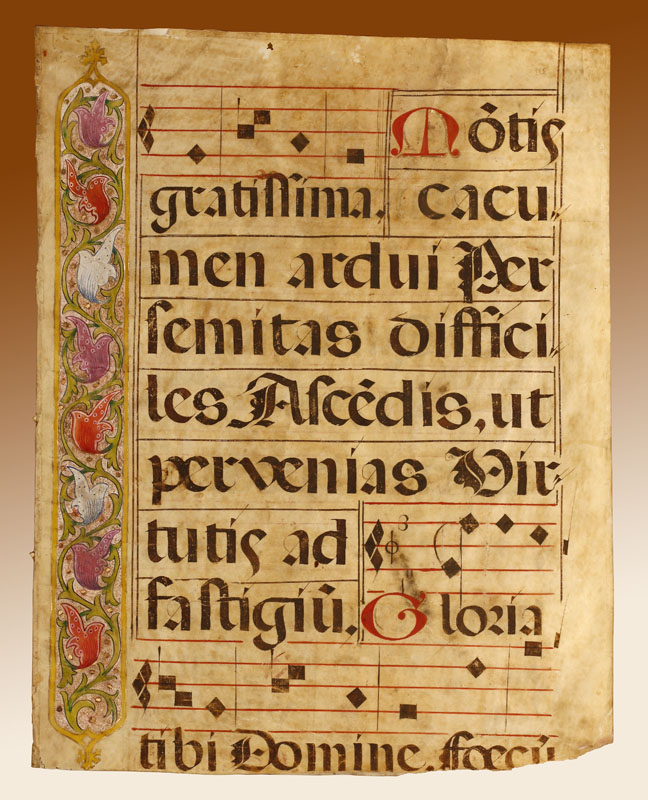 Mõtis
gratissima, cacu
men ardui Per
semitas diffici
les Ascẽdis, ut
pervenias Vir
tutis ad
fastigiũ.
3
Gloria
tibi Domine, fœcũ